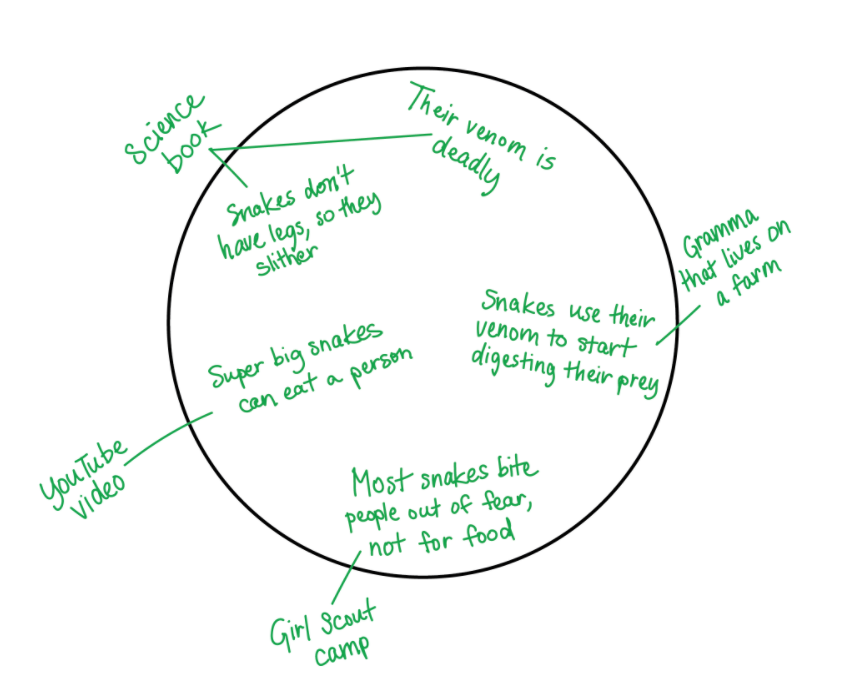 Science
book
Their venom is
deadly
Snakes don't
have legs, so they
slither
Gramma
that lives on
a farm
Snakes use their
venom to start
digesting their prey
Super big snakes
can eat a person
YouTube
video
Most snakes bite
people out of fear,
not for food
Girl Scout
camp